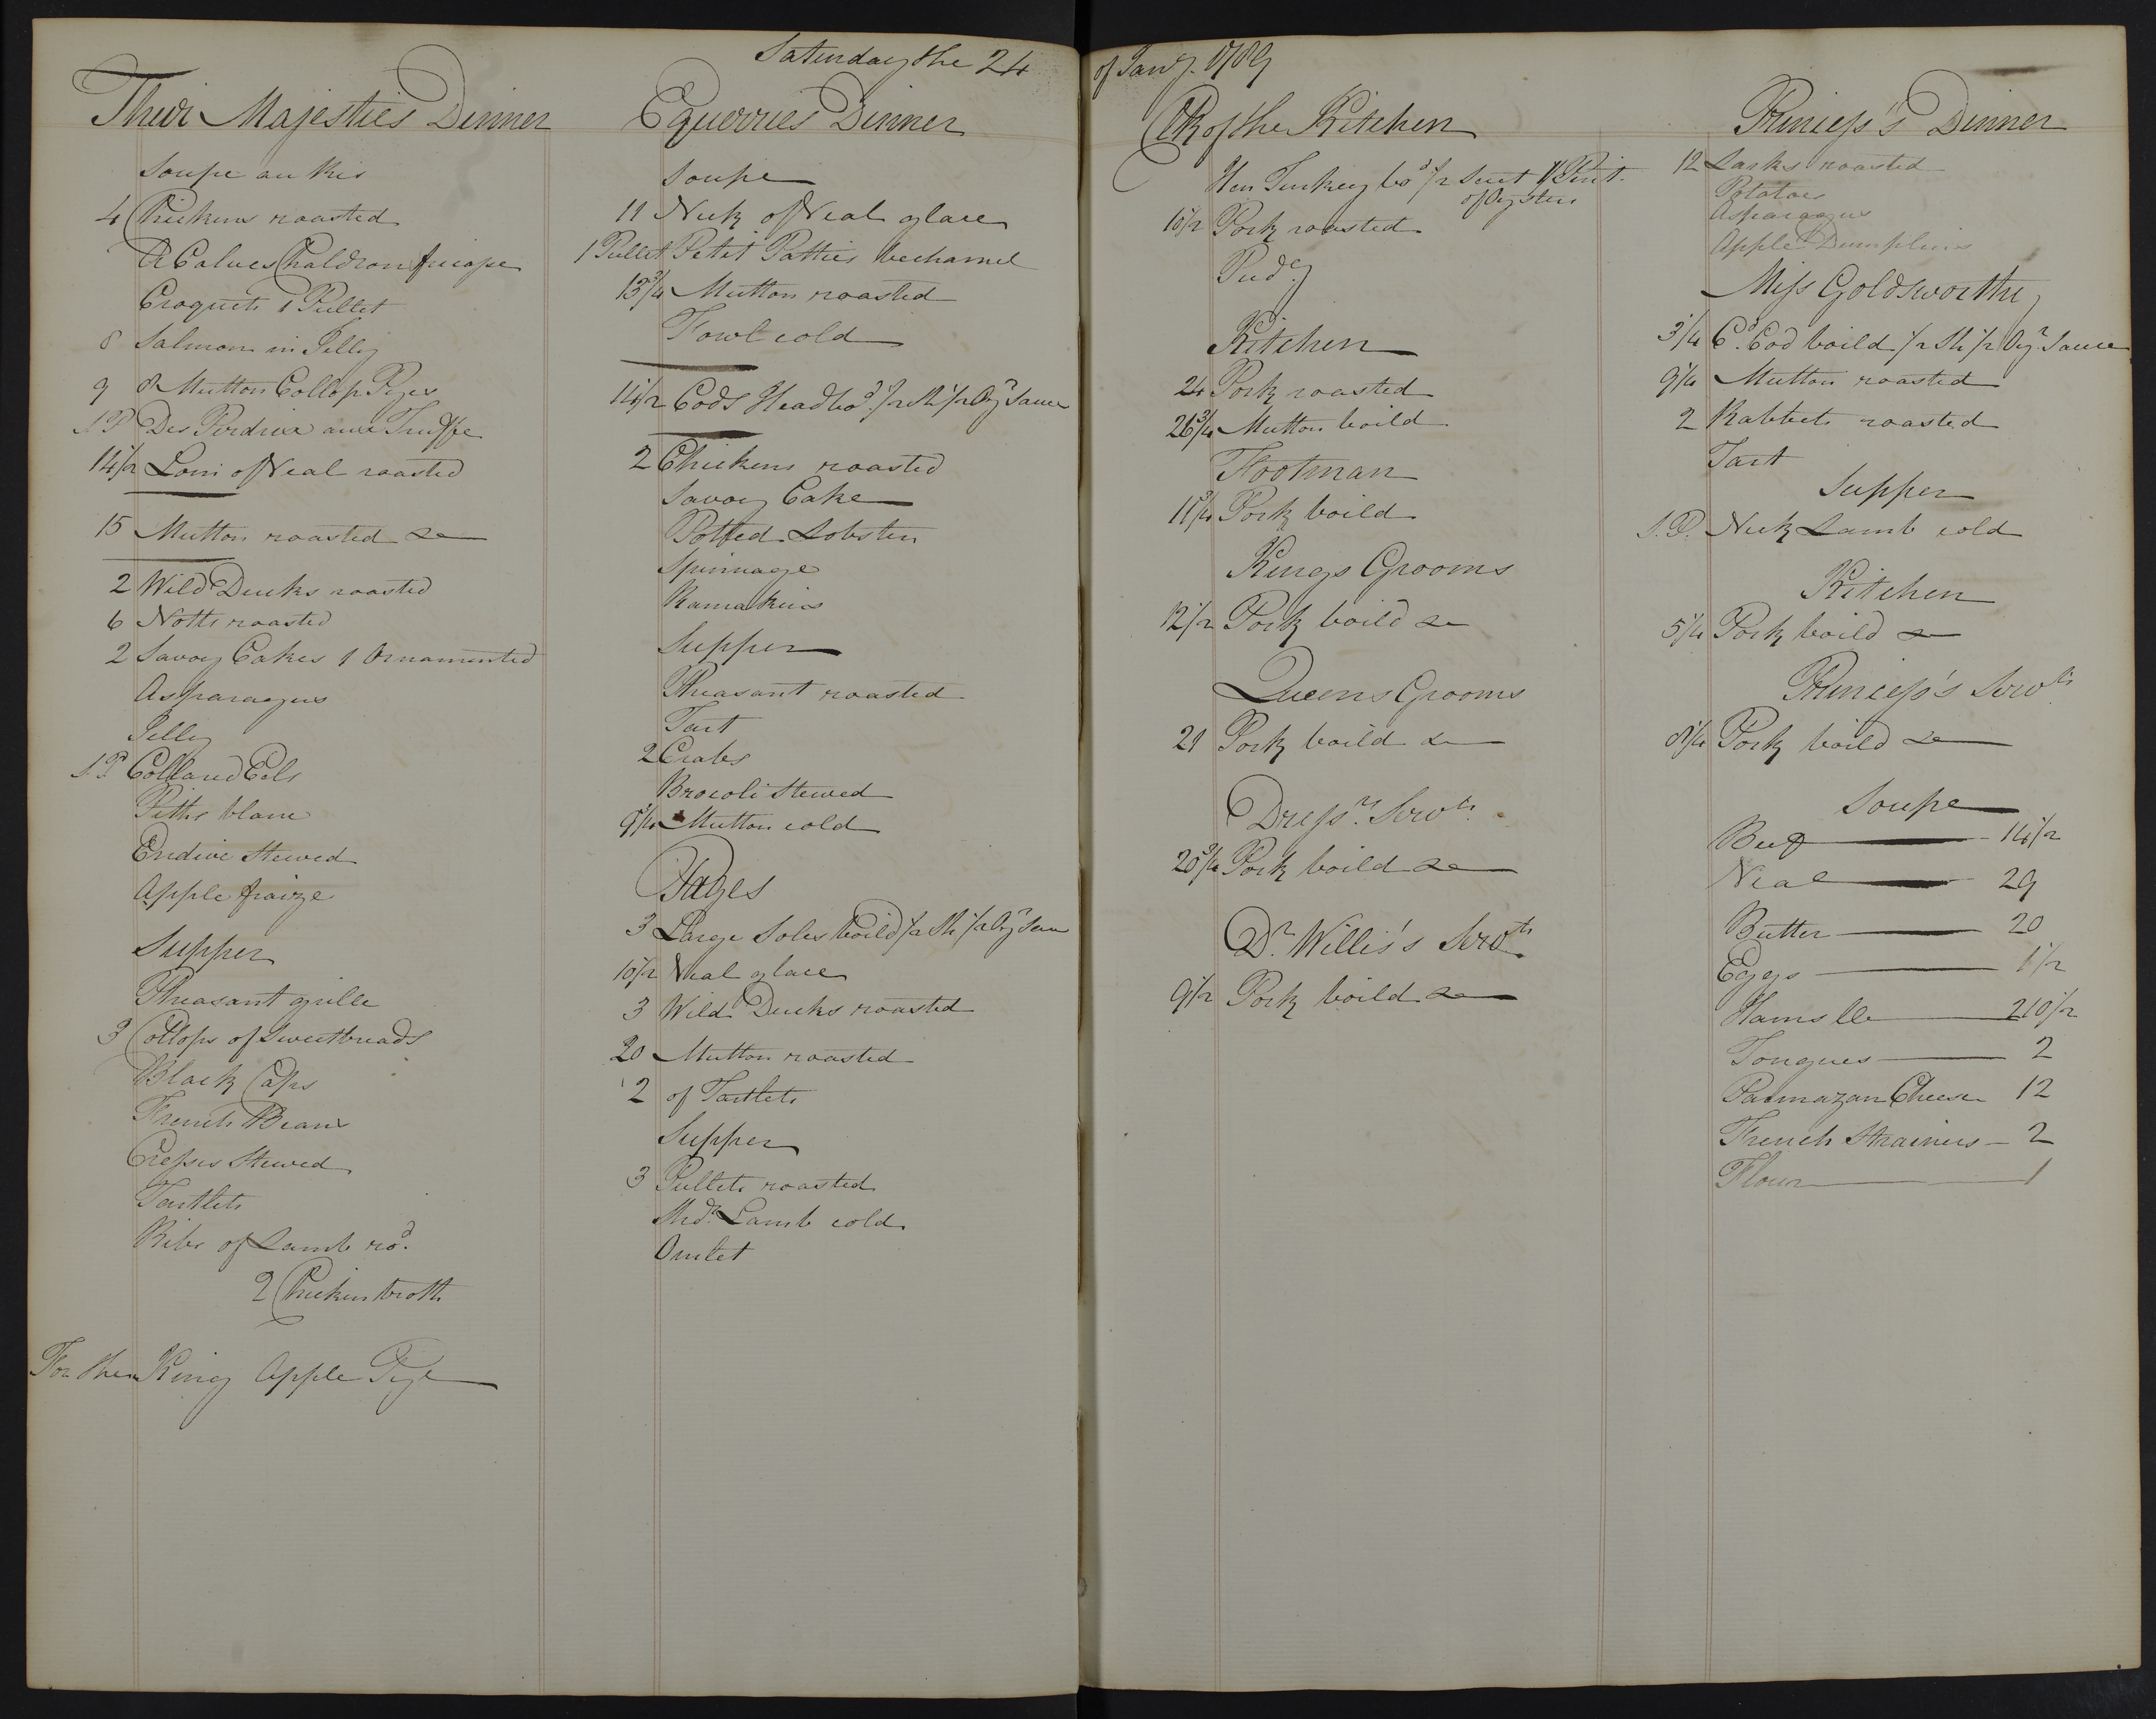 Saturday the 24 of Jany. 1789
Their Majesties Dinner
Soupe au Ris
4 Chickens roasted
A Calves Chaldron fricasse
Croquets 1 Pullet
8 Salmon in Jelly
9 & Mutton Collop Pyes
S.P Des Perdrix aux Truffe
14 1/2 Loin of Veal roasted
15 Mutton roasted &
2 Wild Ducks roasted
6 Notts roasted
2 Savoy Cakes 1 Ornamented
Asparagus
Jelly
S.P Collard Eels
Piths blanc
Endive Stewed
Apple fraize
Supper
Pheasant grille
3 Collops of Sweetbreads
Black Caps
French Beans
Cresses Stewed
Tartlets
Ribs of Lamb rod.
2 Chicken broth
For the King Apple Pye
Equerries Dinner
Soupe
11 Neck of Veal glace
1 Pullet Petit Patties bechamel
13 3/4 Mutton roasted
Fowl cold
14 1/2 Cods Head bod. 1/2 Sh 1/2 Oyr Sauce
2 Chickens roasted
Savoy Cake
Potted Lobster
Spinnage
Ramakins
Supper
Pheasant roasted
Tart
2 Crabs
Brocoli Stewed
9 1/4 Mutton cold
Pages
3 Large Soles boild 1/2 Sh 1/2 Oyr Sau
10 1/2 Veal glace
3 Wild Ducks roasted
20 Mutton roasted
2 of Tartlets
Supper
3 Pullets roasted
Shdr. Lamb cold
Omlet
Clk of the Kitchen
Hen Turkey bod 1/2 Suet 1 Pint.
of Oysters
10 1/2 Pork roasted
Pudg
Kitchen
24 Pork roasted
26 3/4 Mutton boild
Footman
11 3/4 Pork boild
Kings Grooms
12 1/2 Pork boild &
Queens Grooms
21 Pork boild &
Dressrs. Servts.
20 3/4 Pork boild &
Dr. Willis's Servts
9 1/2 Pork boild &
Princess's Dinner
12 Larks roasted
Potatoes
Asparagus
Apple Dumplins
Miss Goldsworthy
3 1/4 Cd. Cod boild 1/2 Sh 1/2 Oyr. Sauce
9 1/4 Mutton roasted
2 Rabbets roasted
Tart
Supper
S.P. Neck Lamb cold
Kitchen
5 1/4 Pork boild &
Princess's Servts
8 1/4 Pork boild &
Soupe
Beef 14 1/2
Veal 29
Butter 20
Eggs 1 1/2
Hams 210 1/2
Tongues 2
Parmazan Cheese 12
French Strainers 2
Flour 1